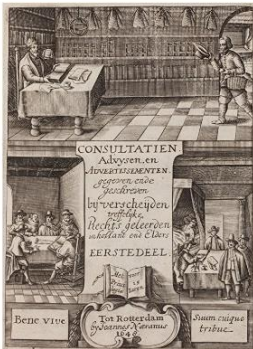 CONSULTATIEN
Advysen en
ADVERTISSEMENTEN
gegeven ende
geschreven
by verscheyden
treffelijke
Rechts geleerden
in hollant end Elders
EERSTE DEEL
Met
Tot Rotterdam
by Ioannes Næranus
Bene vive
Suum cuique
tribue